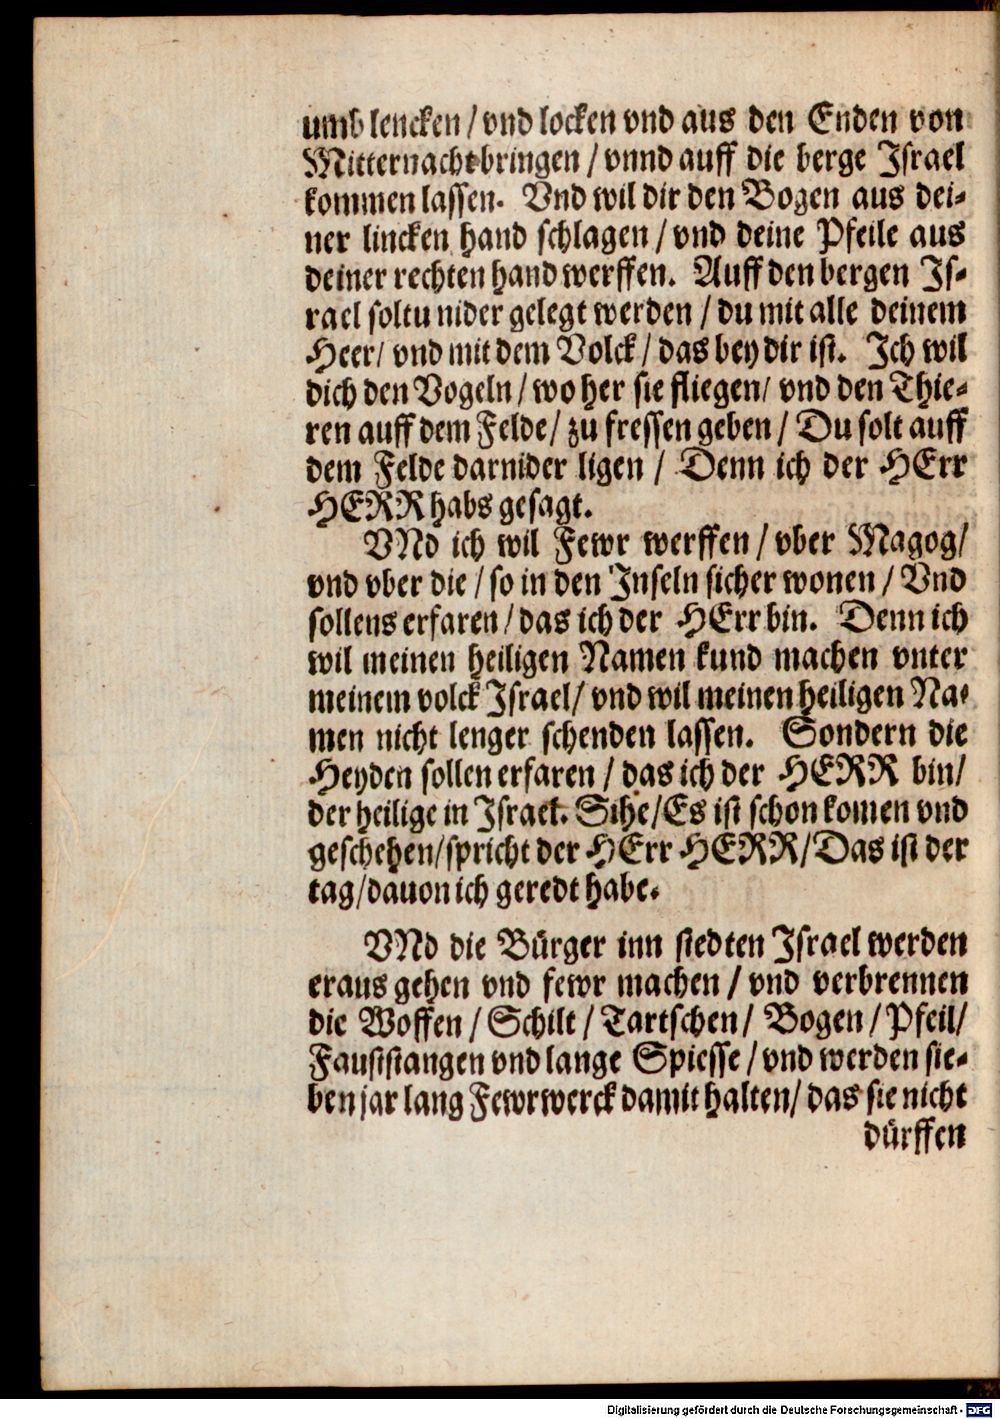 umb lencken / vnd locken vnd aus den Enden von
Mitternacht bringen / vnnd auff die berge Israel
kommen lassen. Vnd wil dir den Bogen aus dei-
ner lincken hand schlagen / vnd deine Pfeile aus
deiner rechten hand werffen. Auff den bergen Is-
rael soltu nider gelegt werden / du mit alle deinem
Heer / vnd mit dem Volck / das bey dir ist. Ich wil
dich den Vogeln / wo her sie fliegen / vnd den Thie-
ren auff dem Felde / zu fressen geben / Du solt auff
dem Felde darnider ligen / Denn ich der HErr
HERR habs gesagt.
VNd ich wil Fewr werffen / vber Magog /
vnd vber die / so in den Inseln sicher wonen / Vnd
sollens erfaren / das ich der HErr bin. Denn ich
wil meinen heiligen Namen kund machen vnter
meinem volck Israel / vnd wil meinen heiligen Na-
men nicht lenger schenden lassen. Sondern die
Heyden sollen erfaren / das ich der HERR bin /
der heilige in Israel. Sihe / Es ist schon komen vnd
geschehen / spricht der HErr HERR / Das ist der
tag / dauon ich geredt habe.
VNd die Bürger inn stedten Israel werden
eraus gehen vnd fewr machen / vnd verbrennen
die Woffen / Schilt / Tartschen / Bogen / Pfeil /
Fauststangen vnd lange Spiesse / vnd werden sie-
ben jar lang Fewrwerck damit halten / das sie nicht
dürffen
Digitalisierung gefördert durch die Deutsche Forschungsgemeinschaft - DFG